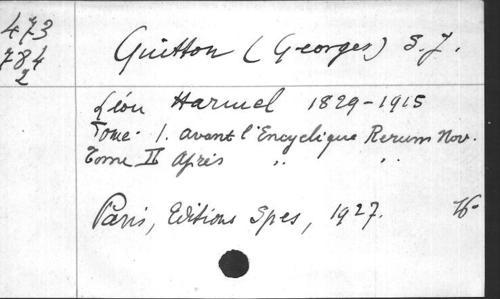 473
784
2
Guitton (Georges) S. J.
Léon Harmel 1829-1915
Tome 1. avant l'Encyclique Rerum Nov.
Tome II Après " "
Paris, Editions Spes, 1927.